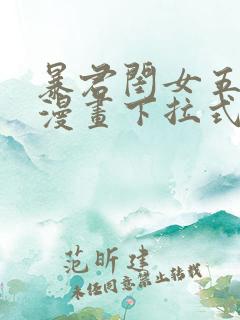 暴君閨女五
漫畫下拉式
范昕建
未经同意禁止转载